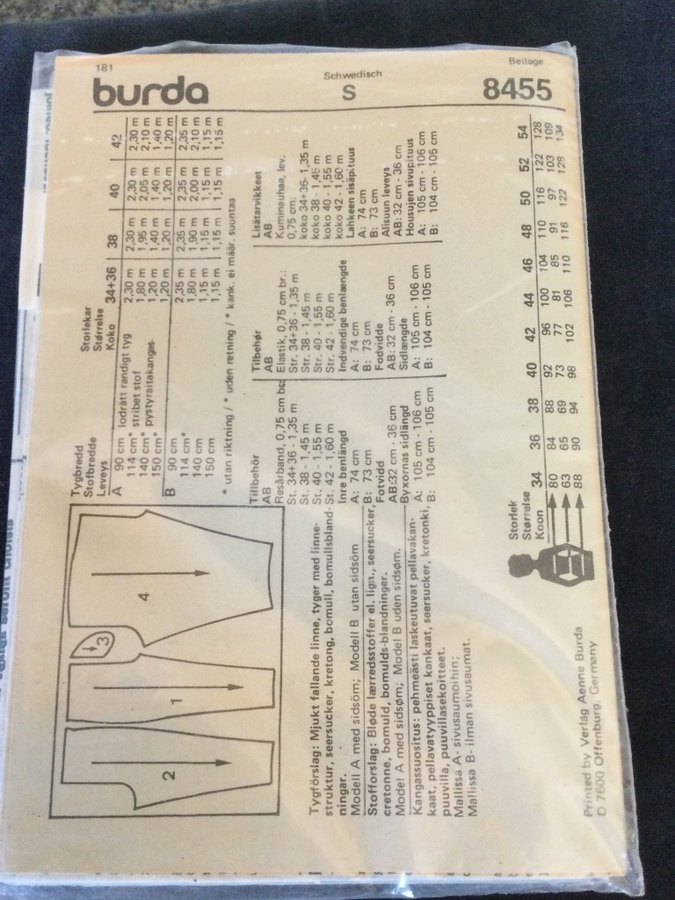 181
burda
Schwedisch
S
Beilage
8455
Tygbredd
Stofbredde
Leveys
Storlekar
Størrelse
Koko
34+36 38 40 42
A 90 cm lodrätt randigt tyg 2,30 m 2,30 m 2,30 m 2,30 m
114 cm* stribet stof 1,80 m 1,95 m 2,05 m 2,10 m
140 cm* pystyraitakangas 1,20 m 1,40 m 1,40 m 1,40 m
150 cm* 1,20 m 1,20 m 1,20 m 1,20 m
B 90 cm 2,35 m 2,35 m 2,35 m 2,35 m
114 cm* 1,80 m 1,90 m 2,00 m 2,10 m
140 cm 1,15 m 1,15 m 1,15 m 1,15 m
150 cm 1,15 m 1,15 m 1,15 m 1,15 m
* utan riktning / * uden retning / * kank. ei määr. suuntaa
Tillbehör
AB
Resårband, 0,75 cm br.
St. 34+36 - 1,35 m
St. 38 - 1,45 m
St. 40 - 1,55 m
St. 42 - 1,60 m
Inre benlängd
A: 74 cm
B: 73 cm
Fotvidd
AB: 32 cm - 36 cm
Byxornas sidlängd
A: 105 cm - 106 cm
B: 104 cm - 105 cm
Tilbehør
AB
Elastik, 0,75 cm br.:
Str. 34+36 - 1,35 m
Str. 38 - 1,45 m
Str. 40 - 1,55 m
Str. 42 - 1,60 m
Indvendige benlængde
A: 74 cm
B: 73 cm
Fodvidde
AB: 32 cm - 36 cm
Sidlængde
A: 105 cm - 106 cm
B: 104 cm - 105 cm
Lisätarvikkeet
AB
Kuminauhaa, lev.
0,75 cm:
koko 34+36- 1,35 m
koko 38 - 1,45 m
koko 40 - 1,55 m
koko 42 - 1,60 m
Lahkeen sisäpituus
A: 74 cm
B: 73 cm
Alisuun leveys
AB: 32 cm - 36 cm
Housujen sivupituus
A: 105 cm - 106 cm
B: 104 cm - 105 cm
4
3
1
2
Tygförslag: Mjukt fallande linne, tyger med linne-
struktur, seersucker, kretong, bomull, bomullsbland-
ningar.
Modell A med sidsöm; Modell B utan sidsöm
Stofforslag: Bløde lærredsstoffer el. lign., seersucker,
cretonne, bomuld, bomulds-blandninger.
Model A med sidsøm; Model B uden sidsøm.
Kangassuositus: pehmeästi laskeutuvat pellavakan-
kaat, pellavatyyppiset kankaat, seersucker, kretonki,
puuvilla, puuvillasekoitteet.
Mallissa A- sivusaumoihin;
Mallissa B- ilman sivusaumat.
Storlek
Størrelse
Koon
34 36 38 40 42 44 46 48 50 52 54
80 84 88 92 96 100 104 110 116 122 128
63 65 69 73 77 81 85 91 97 103 109
88 90 94 98 102 106 110 116 122 128 134
Printed by Verlag Aenne Burda
D 7600 Offenburg, Germany